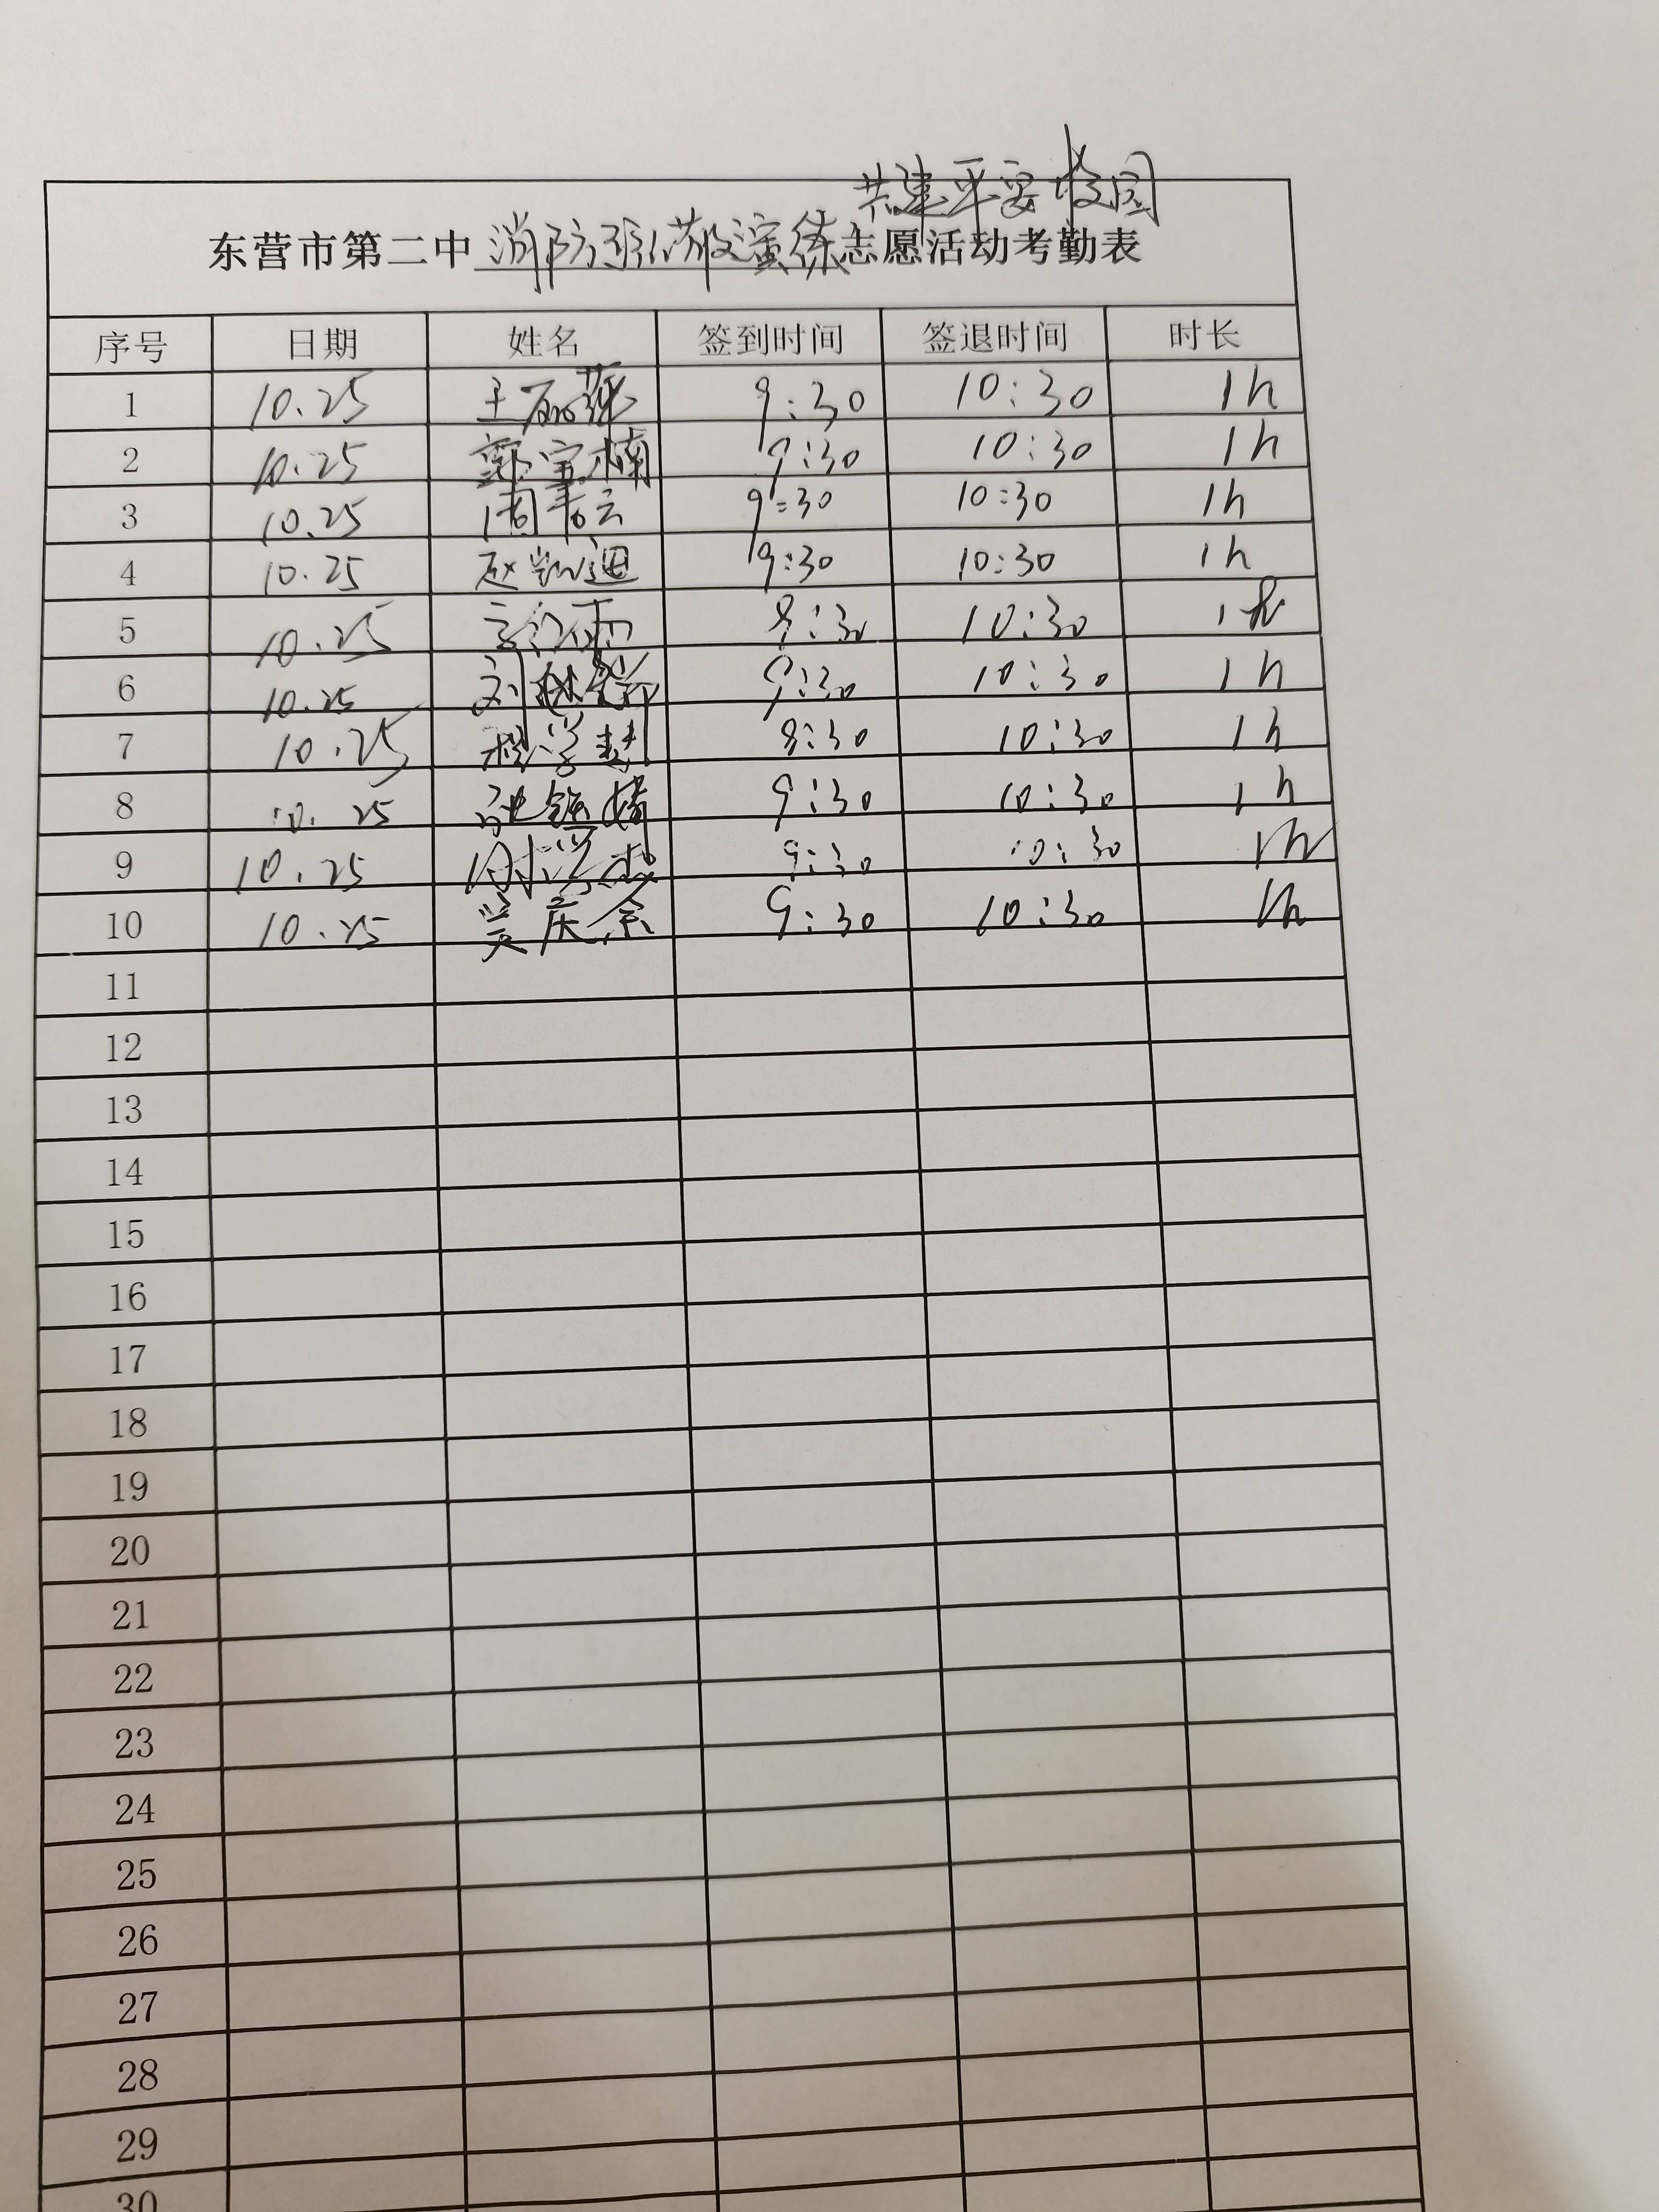 共建平安校园
东营市第二中消防疏散演练志愿活动考勤表
序号 日期 姓名 签到时间 签退时间 时长
1 10.25 王丽萍 9:30 10:30 1h
2 10.25 郭宝楠 9:30 10:30 1h
3 10.25 9:30 10:30 1h
4 10.25 赵凯迪 9:30 10:30 1h
5 10.25 9:30 10:30 1h
6 10.25 刘 9:30 10:30 1h
7 10.25 程学慧 9:30 10:30 1h
8 10.25 10:30 1h
9 10.25 9:30 10:30 1h
10 10.25 吴庆余 9:30 10:30 1h
11
12
13
14
15
16
17
18
19
20
21
22
23
24
25
26
27
28
29
30